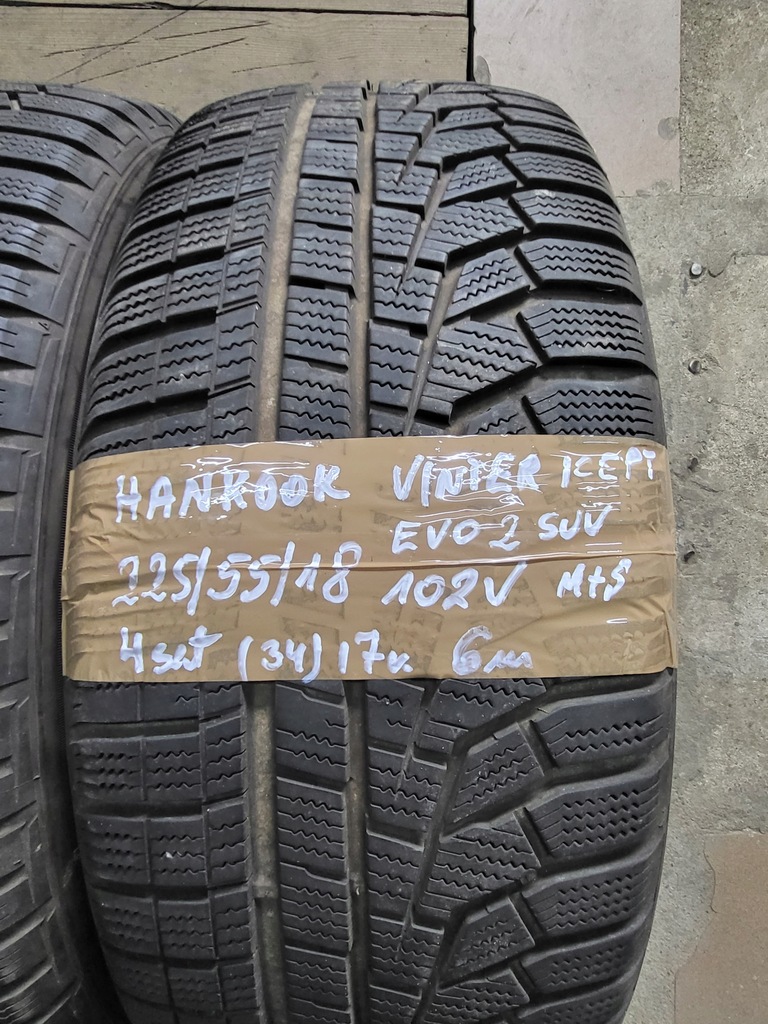 HANKOOK VINTER ICEPT
EVO 2 SUV
225/55/18 102V M+S
4 set (34) 17r. 6mm